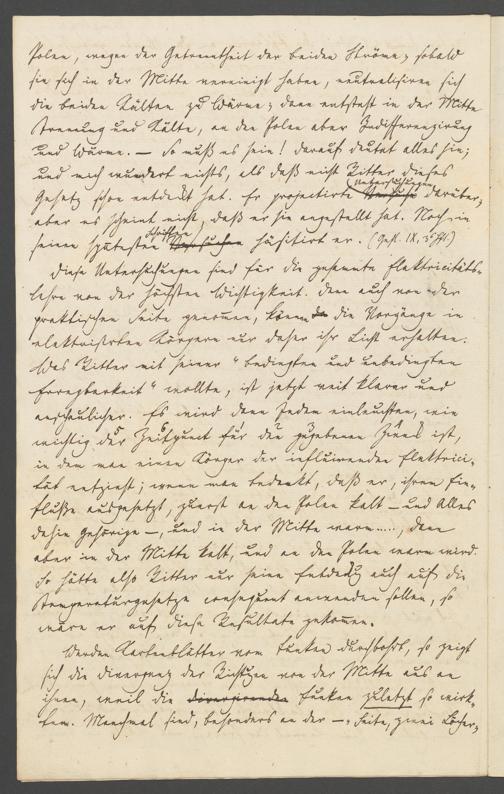 Polen, wegen der Getrenntheit der beiden Ströme; sobald
sie sich in der Mitte vereinigt haben, neutralisiren sich
die beiden Kälten zu Wärme; dann entsteht in der Mitte
Trennung und Kälte, an den Polen aber Indifferenzirung
und Wärme. — So muß es sein! darauf deutet alles hin;
und mich wundert nichts, als daß nicht Ritter dieses
Gesetz schon entdeckt hat. Er projectirte Untersuchungen darüber,
aber es scheint nicht, daß er sie angestellt hat. Noch in
seinen spätesten Schriften häsitirt er. (Geh. IX, 3
Diese Untersuchungen sind für die gesammte Elektricitäts-
lehre von der höchsten Wichtigkeit. Denn auch von der
praktischen Seite genommen, können die Vorgänge in
elektrisirten Körpern nur daher ihr Licht erhalten.
Was Ritter mit seiner "bedingten und unbedingten
Erregbarkeit" wollte, ist jetzt weit klarer und
anschaulicher. Es wird dann Jedem einleuchten, wie
wichtig der Zeitpunct für den gegebenen Zweck ist,
in dem man einen Körper der influirenden Elektrici-
tät entzieht; wenn man bedenkt, daß er, ihrem Ein-
flüße ausgesetzt, zuerst an den Polen kalt — und Alles
dahin gehörige —, und in der Mitte warm ...., dann
aber in der Mitte kalt, und an den Polen warm wird.
So hätte also Ritter nur seine Entdeckg auch auf die
Temperaturgesetze consequent anwenden sollen, so
wäre er auf diese Resultate gekommen.
Werden Kartenblätter vom Funken durchbohrt, so zeigt
sich die divergenz der Richtgen von der Mitte aus an
ihnen, weil die divergirenden Funken zuletzt so wirk-
ten. Manchmal sind, besonders an der —. Seite, zwei Löcher,